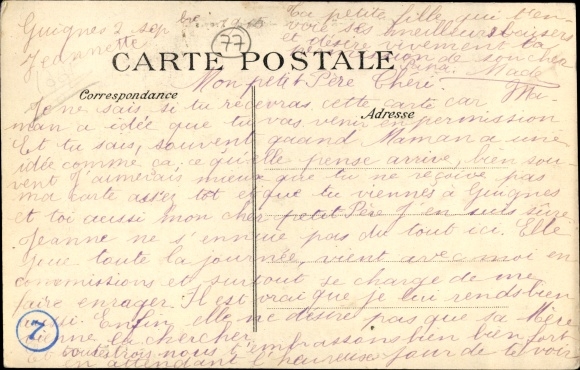 Guignes 2 sep
Jeannette
77
Ta petite fille qui t'en-
voie ses meilleurs baisers
et désire vivement ta
de son cher
Made
CARTE POSTALE
Mon petit Père Chéri.
Correspondance
Adresse
Je ne sais si tu recevras cette carte car Ma-
man a idée que tu vas venir en permission
Et tu sais, souvent quand Maman a une
idée comme ça, ce qu'elle pense arrive, bien sou-
vent J'aimerais mieux que tu ne reçoive pas
ma carte assez tot et que tu viennes à Guignes
et toi aussi mon cher petit Père j'en suis sûre
Jeanne ne s'ennuie pas du tout ici. Elle
joue toute la journée, vient avec moi en
commissions et surtout se charge de me
faire enrager. Il est vrai que je lui rends bien
aussi. Enfin elle ne désire pas que sa Mère
vienne la chercher.
et toutes trois nous t'embrassons bien bien fort
en attendant l'heureux jour de te voir
Z